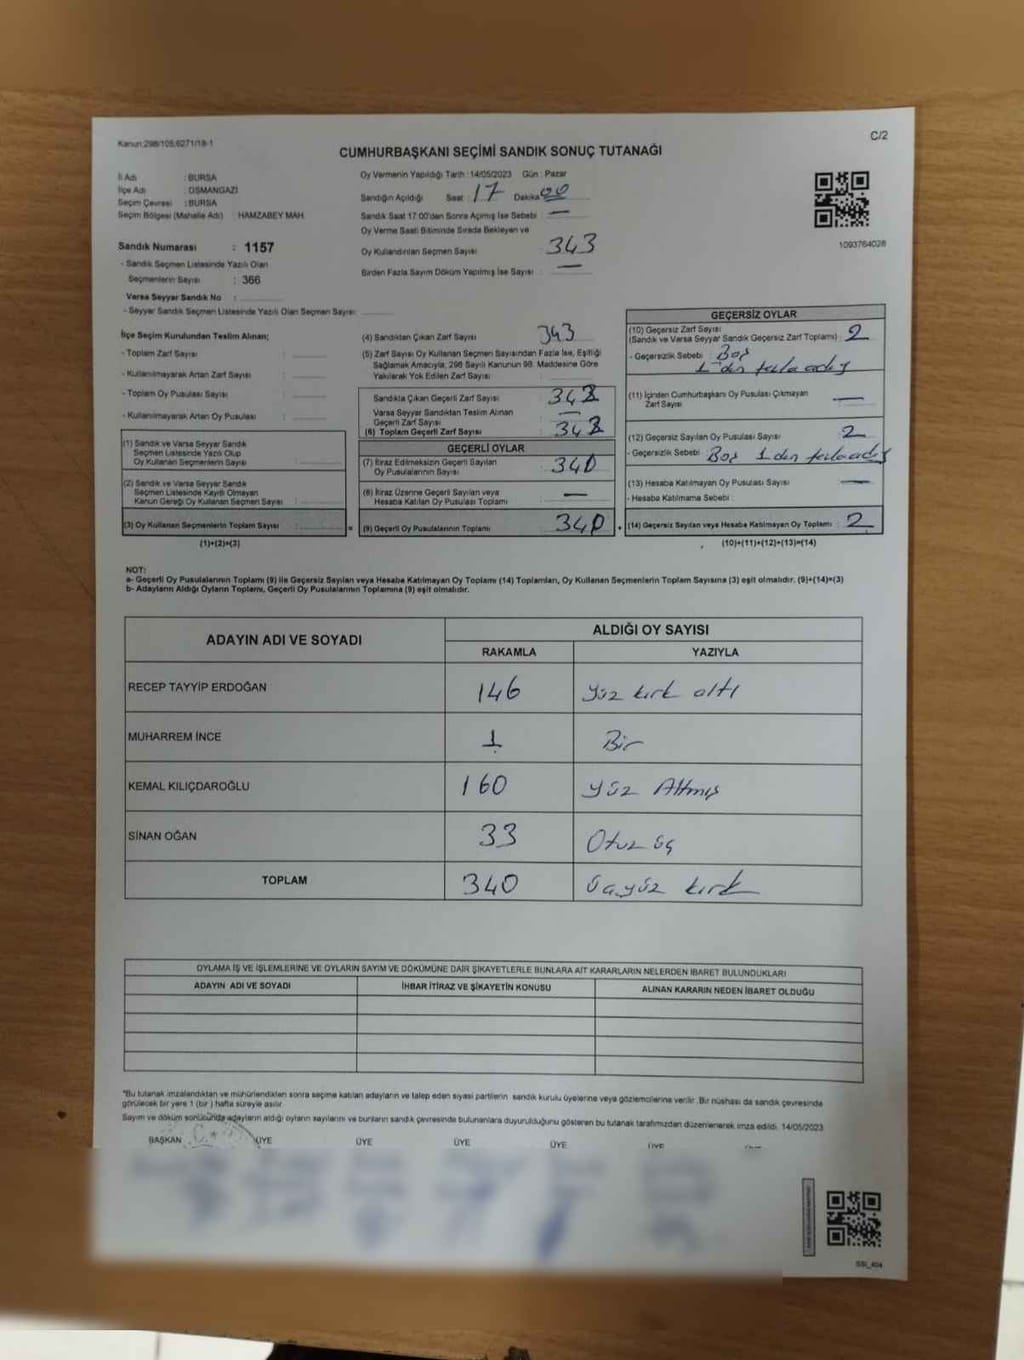 Kanun:298/105,6271/18-1
C/2
CUMHURBAŞKANI SEÇİMİ SANDIK SONUÇ TUTANAĞI
İl Adı : BURSA
İlçe Adı : OSMANGAZİ
Seçim Çevresi : BURSA
Seçim Bölgesi (Mahalle Adı) : HAMZABEY MAH.
Sandık Numarası : 1157
- Sandık Seçmen Listesinde Yazılı Olan
Seçmenlerin Sayısı : 366
Varsa Seyyar Sandık No :
- Seyyar Sandık Seçmen Listesinde Yazılı Olan Seçmen Sayısı :
Oy Vermenin Yapıldığı Tarih : 14/05/2023 Gün : Pazar
Sandığın Açıldığı Saat : 17 Dakika 00
Sandık Saat 17:00'den Sonra Açımış İse Sebebi : —
Oy Verme Saati Bitiminde Sırada Bekleyen ve
Oy Kullandırılan Seçmen Sayısı : 343
Birden Fazla Sayım Döküm Yapılmış İse Sayısı : —
1093764028
İlçe Seçim Kurulundan Teslim Alınan;
- Toplam Zarf Sayısı :
- Kullanılmayarak Artan Zarf Sayısı :
- Toplam Oy Pusulası Sayısı :
- Kullanılmayarak Artan Oy Pusulası :
(1) Sandık ve Varsa Seyyar Sandık
Seçmen Listesinde Yazılı Olup
Oy Kullanan Seçmenlerin Sayısı :
(2) Sandık ve Varsa Seyyar Sandık
Seçmen Listesinde Kayıtlı Olmayan
Kanun Gereği Oy Kullanan Seçmen Sayısı :
(3) Oy Kullanan Seçmenlerin Toplam Sayısı : =
(1)+(2)=(3)
(4) Sandıktan Çıkan Zarf Sayısı : 343
(5) Zarf Sayısı Oy Kullanan Seçmen Sayısından Fazla İse, Eşitliği
Sağlamak Amacıyla, 298 Sayılı Kanunun 98. Maddesine Göre
Yakılarak Yok Edilen Zarf Sayısı :
Sandıkta Çıkan Geçerli Zarf Sayısı : 342
Varsa Seyyar Sandıktan Teslim Alınan
Geçerli Zarf Sayısı : —
(6) Toplam Geçerli Zarf Sayısı : 342
GEÇERLİ OYLAR
(7) İtiraz Edilmeksizin Geçerli Sayılan
Oy Pusulalarının Sayısı : 340
(8) İtiraz Üzerine Geçerli Sayılan veya
Hesaba Katılan Oy Pusulası Toplamı : —
(9) Geçerli Oy Pusulalarının Toplamı : 340 +
GEÇERSİZ OYLAR
(10) Geçersiz Zarf Sayısı
(Sandık ve Varsa Seyyar Sandık Geçersiz Zarf Toplamı) : 2
- Geçersizlik Sebebi : Boş
1'den fazla aday
(11) İçinden Cumhurbaşkanı Oy Pusulası Çıkmayan
Zarf Sayısı : —
(12) Geçersiz Sayılan Oy Pusulası Sayısı : 2
- Geçersizlik Sebebi : Boş 1 den fazla aday
(13) Hesaba Katılmayan Oy Pusulası Sayısı : —
- Hesaba Katılmama Sebebi :
(14) Geçersiz Sayılan veya Hesaba Katılmayan Oy Toplamı : 2
(10)+(11)+(12)+(13)=(14)
NOT:
a- Geçerli Oy Pusulalarının Toplamı (9) ile Geçersiz Sayılan veya Hesaba Katılmayan Oy Toplamı (14) Toplamları, Oy Kullanan Seçmenlerin Toplam Sayısına (3) eşit olmalıdır. (9)+(14)=(3)
b- Adayların Aldığı Oyların Toplamı, Geçerli Oy Pusulalarının Toplamına (9) eşit olmalıdır.
ADAYIN ADI VE SOYADI
ALDIĞI OY SAYISI
RAKAMLA YAZIYLA
RECEP TAYYİP ERDOĞAN 146 yüz kırk altı
MUHARREM İNCE 1 Bir
KEMAL KILIÇDAROĞLU 160 yüz Altmış
SİNAN OĞAN 33 Otuz üç
TOPLAM 340 üçyüz kırk
OYLAMA İŞ VE İŞLEMLERİNE VE OYLARIN SAYIM VE DÖKÜMÜNE DAİR ŞİKAYETLERLE BUNLARA AİT KARARLARIN NELERDEN İBARET BULUNDUKLARI
ADAYIN ADI VE SOYADI İHBAR İTİRAZ VE ŞİKAYETİN KONUSU ALINAN KARARIN NEDEN İBARET OLDUĞU
"Bu tutanak imzalandıktan ve mühürlendikten sonra seçime katılan adayların ve talep eden siyasi partilerin sandık kurulu üyelerine veya gözlemcilerine verilir. Bir nüshası da sandık çevresinde
görülecek bir yere 1 (bir ) hafta süreyle asılır.
Sayım ve döküm sonucunda adayların aldığı oyların sayılarını ve bunların sandık çevresinde bulunanlara duyurulduğunu gösteren bu tutanak tarafımızdan düzenlenerek imza edildi. 14/05/2023
BAŞKAN ÜYE ÜYE ÜYE ÜYE ÜYE
SSI_404